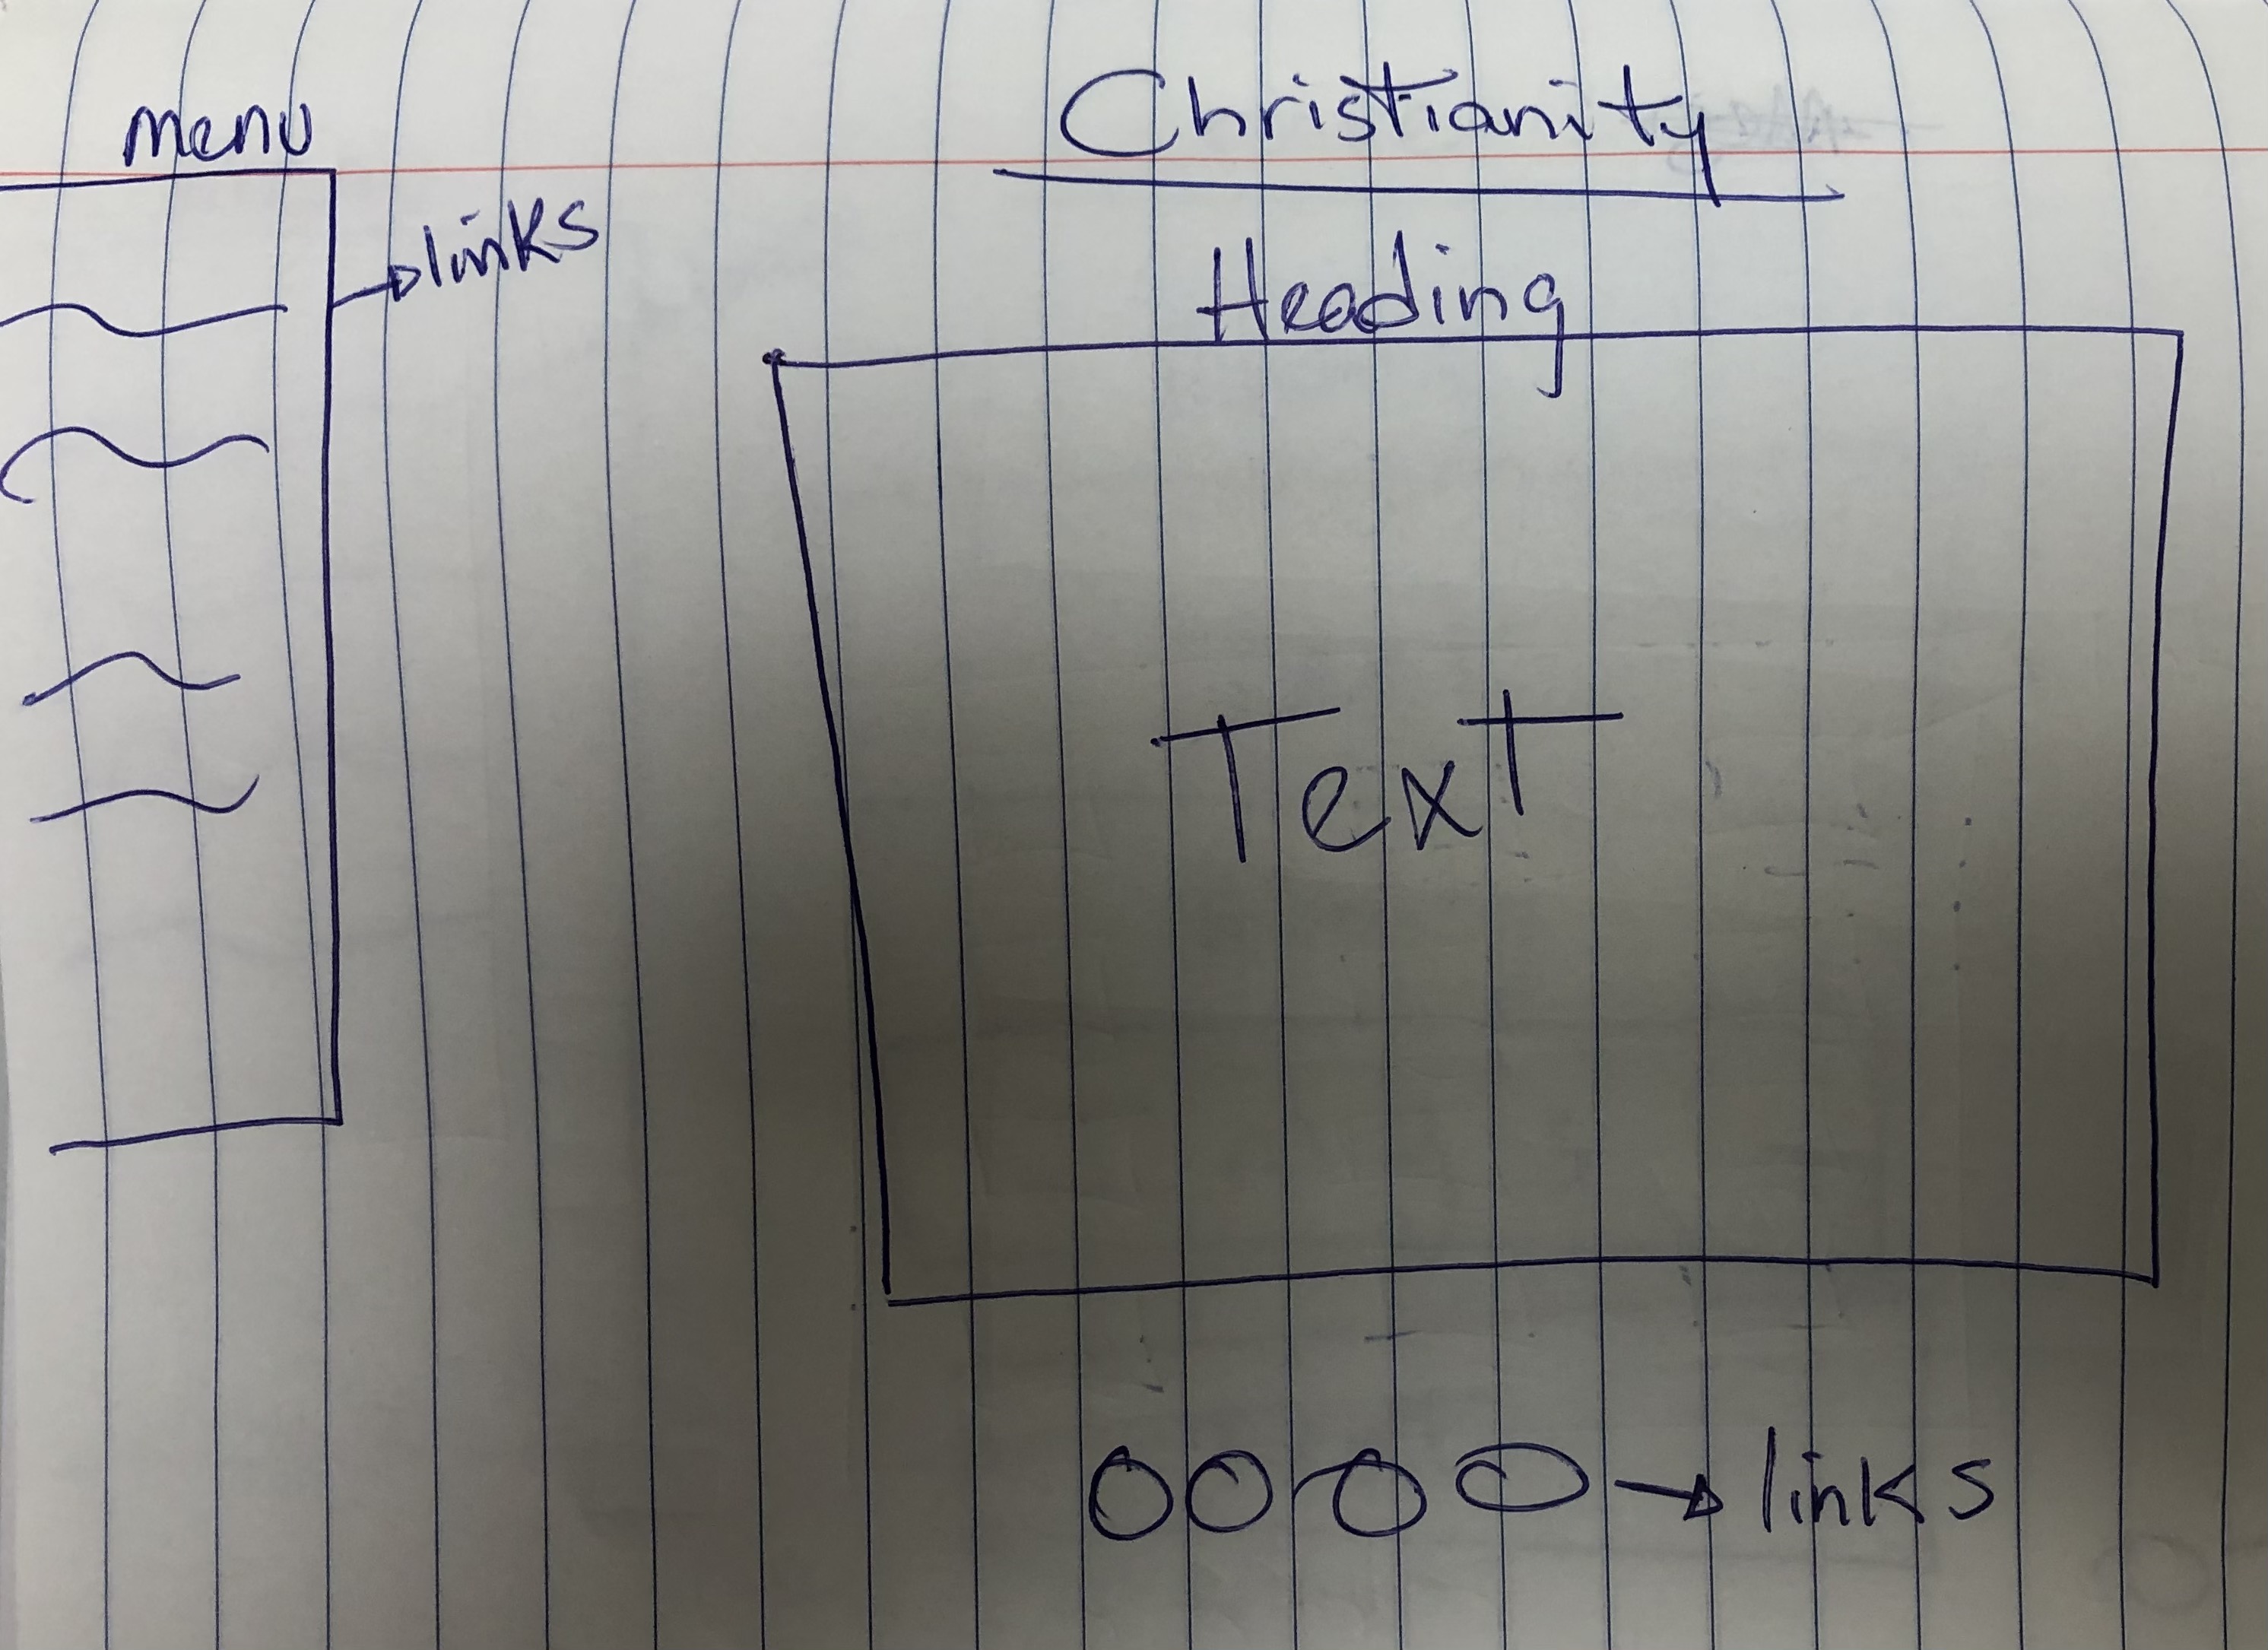 menu
links
Christianity
Heading
Text
links